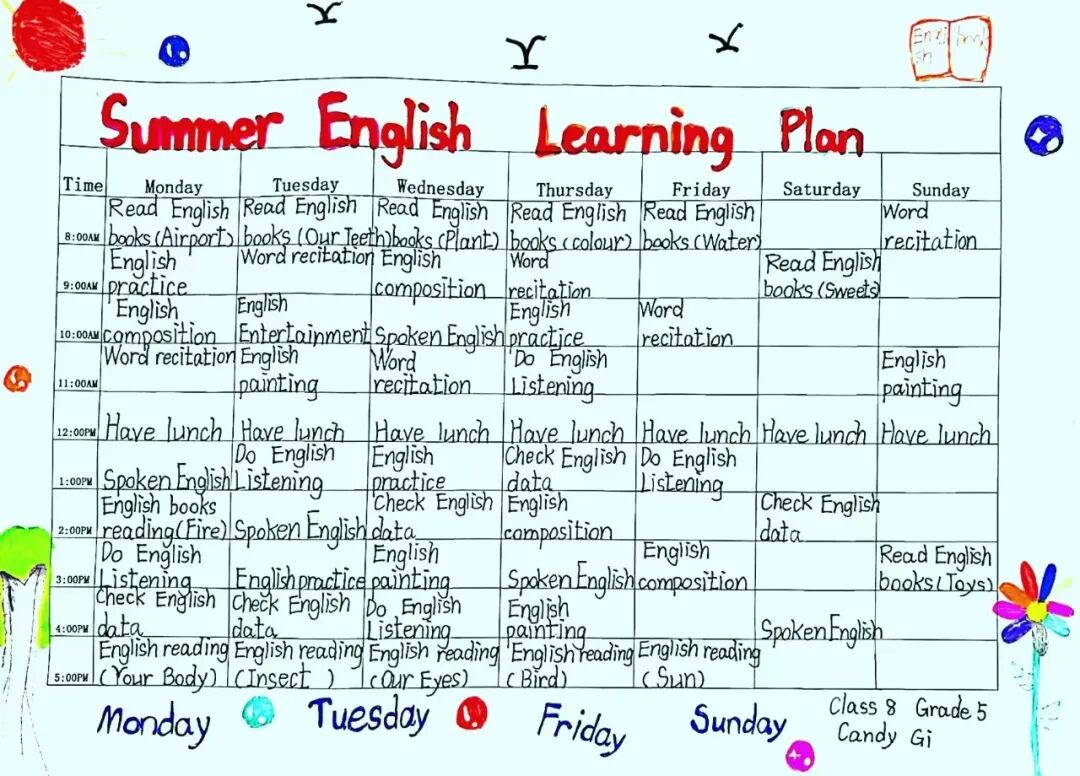 Engli book
sh
Summer English Learning Plan
Time Monday Tuesday Wednesday Thursday Friday Saturday Sunday
Read English Read English Read English Read English Read English Word
8:00AM books (Airport) books (Our Teeth) books (Plant) books (colour) books (Water) recitation
English Word recitation English Word Read English
9:00AM practice composition recitation books (Sweets)
English English English Word
10:00AM composition Entertainment Spoken English practice recitation
Word recitation English Word Do English English
11:00AM painting recitation Listening painting
12:00PM Have lunch Have lunch Have lunch Have lunch Have lunch Have lunch Have lunch
Do English English Check English Do English
1:00PM Spoken English Listening practice data Listening
English books Check English English Check English
2:00PM reading (Fire) Spoken English data composition data
Do English English English Read English
3:00PM Listening English practice painting Spoken English composition books (Toys)
Check English Check English Do English English
4:00PM data data Listening painting Spoken English
English reading English reading English reading English reading English reading
5:00PM (Your Body) (Insect ) (Our Eyes) (Bird) (Sun)
Monday Tuesday Friday Sunday
Class 8 Grade 5
Candy Gi